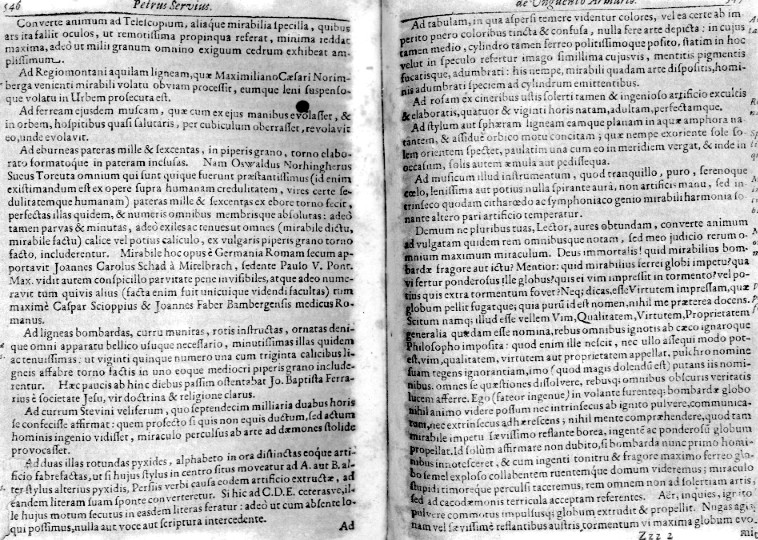 546 Petrus Servius.
Converte animum ad Telescopium, aliaque mirabilia specilla, quibus
ars ita fallit oculos, ut remotissima propinqua referat, minima reddat
maxima, adeò ut milii granum omnino exiguum cedrum exhibeat am-
plissimum.
Ad Regiomontani aquilam ligneam, quæ Maximiliano Cæsari Norim-
berga venienti mirabili volatu obviam processit, eumque leni suspenso-
que volatu in Urbem prosecuta est.
Ad ferream ejusdem muscam, quæ cum ex ejus manibus evolasset, &
in orbem, hospitibus quasi salutaris, per cubiculum oberrasset, revolavit
eo, unde evolavit.
Ad eburneas pateras mille & sexcentas, in piperis grano, torno elabo-
rato formatoque in pateram inclusas. Nam Oswaldus Norhingherus
Sucus Toreuta omnium qui sunt quique fuerunt præstantissimus (id enim
existimandum est ex opere supra humanam credulitatem, vires certe se-
dulitatemque humanam) pateras mille & sexcentas ex ebore torno fecit,
perfectas illas quidem, & numeris omnibus membrisque absolutas: adeò
tamen parvas & minutas, adeò exiles ac tenues ut omnes (mirabile dictu,
mirabile factu) calice vel potius caliculo, ex vulgaris piperis grano torno
facto, includerentur. Mirabile hoc opus è Germania Romam secum ap-
portavit Joannes Carolus Schad à Mitelbrach, sedente Paulo V. Pont.
Max. vidit autem conspicillo parvitate pene invisibiles, atque adeo nume-
ravit tum quivis alius (facta enim fuit unicuique videndi facultas) tum
maximè Gaspar Scioppius & Joannes Faber Bambergensis medicus Ro-
manus.
Ad ligneas bombardas, curru munitas, rotis instructas, ornatas deni-
que omni apparatu bellico usuque necessario, minutissimas illas quidem
ac tenuissimas: ut viginti quinque numero una cum triginta calicibus li-
gneis affabre torno factis in uno eoque mediocri piperis grano include-
rentur. Hæc paucis ab hinc diebus passim ostentabat Jo. Baptista Ferra-
rius è societate Jesu, vir doctrina & religione clarus.
Ad currum Stevini veliferum, quo septendecim milliaria duabus horis
se confecisse affirmat: quem profectò si quis non equis ductum, sed actum
hominis ingenio vidisset, miraculo perculsus ab arte ad dæmones stolide
provocasset.
Ad duas illas rotundas pyxides, alphabeto in ora distinctas eoque arti-
ficio fabrefactas, ut si hujus stylus in centro situs moveatur ad A. aut B. al-
ter stylus alterius pyxidis, Persiis verbi causa eodem artificio extructæ, ad
eandem literam suam sponte converteretur. Si hic ad C.D.E. ceterasve, il-
le hujus motum secutus in easdem literas feratur: adeò ut cum absente lo-
qui possimus, nulla aut voce aut scriptura intercedente.
Ad
de Unguento Armario.
Ad tabulam, in qua aspersi temere videntur colores, vel ea certe ab im-
perito puero coloribus tincta & confusa, nulla fere arte depicta: in cujus
tamen medio, cylindro tamen ferreo politissimoque posito, statim in hoc
velut in speculo refertur imago simillima cujusvis, mentitis pigmentis
fucatisque, adumbrati: his nempe, mirabili quadam arte dispositis, homi-
nis adumbrati speciem ad cylindrum emittentibus.
Ad rosam ex cineribus ustis solerti tamen & ingenioso artificio excultis
& elaboratis, quatuor & viginti horis natam, adultam, perfectamque.
Ad stylum aut sphæram ligneam eamque planam in aquæ amphora na-
tantem, & assiduè orbico motu concitam; quæ nempe exoriente sole so-
lem orientem spectet, paulatim una cum eo in meridiem vergat, & inde in
occasum, solis autem æmula aut pedissequa.
Ad musicum illud instrumentum, quod tranquillo, puro, serenoque
cœlo, lenissima aut potius nulla spirante aura, non artificis manu, sed in-
trinseco quodam citharœdo ac symphoniaco genio mirabili harmonia so-
nante altero pari artificio temperatur.
Demum ne pluribus tuas, Lector, aures obtundam, converte animum
ad vulgatam quidem rem omnibusque notam, sed meo judicio rerum o-
mnium maximum miraculum. Deus immortalis! quid mirabilius bom-
bardæ fragore aut ictu? Mentior: quid mirabilius ferrei globi impetu? qua
vi fertur ponderosus ille globus? quis ei vim impressit in tormento? vel po-
tius quis extra tormentum fovet? Neq; dicas, esse Virtutem impressam, quæ
globum pellit fugatque; quia purum id est nomen, nihil me præterea docens.
Scitum namq; illud esse vellem Vim, Qualitatem, Virtutem, Proprietatem
generalia quædam esse nomina, rebus omnibus ignotis ab cæco ignaroque
Philosopho imposita: quod enim ille nescit, nec ullo assequi modo pot-
est, vim, qualitatem, virtutem aut proprietatem appellat, pulchro nomine
suam tegens ignorantiam, imo (quod magis dolendum est) putans iis nomi-
nibus. omnes se quæstiones dissolvere, rebusq; omnibus obscuris veritatis
lucem afferre. Ego (fateor ingenue) in volante furenteq; bombardæ globo
nihil animo videre possum nec intrinsecus ab ignito pulvere communica-
tum, nec extrinsecus adhærescens; nihil mente comprehendere, quod tam
mirabile impetu sævissimo reflante borea, ingentè ac ponderosū globum
propellat. Id solùm affirmare non dubito, si bombarda nunc primò homi-
nibus innotesceret, & cum ingenti tonitru & fragore maximo ferreo glo-
bo semel exploso collabentem ruentemque domum videremus; miraculo
stupidi timoreque perculsi taceremus, rem omnem non ad solertiam artis,
sed ad cacodæmonis terricula acceptam referentes. Aër, inquies, ignito
pulvere commotus impulsusq; globum extrudit & propellit. Nugas agis;
nam vel sævissimè reflantibus austris, tormentum vi maxima globum evo-
Zzz 2